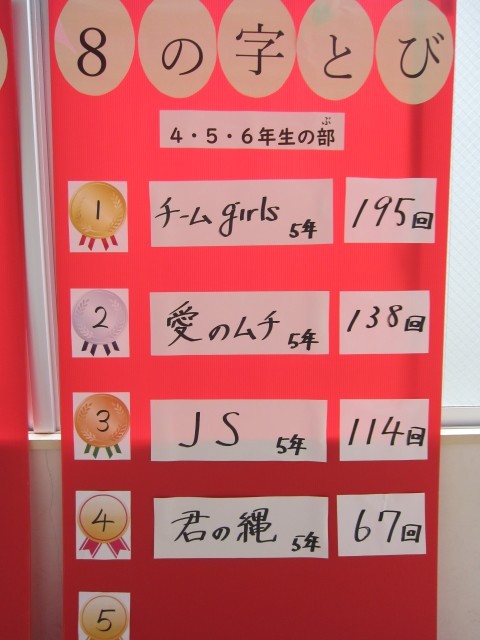 8の字とび
4・5・6年生の部
ぶ
1 チームgirls 5年 195回
2 愛のムチ 5年 138回
3 JS 5年 114回
4 君の縄 5年 67回
5